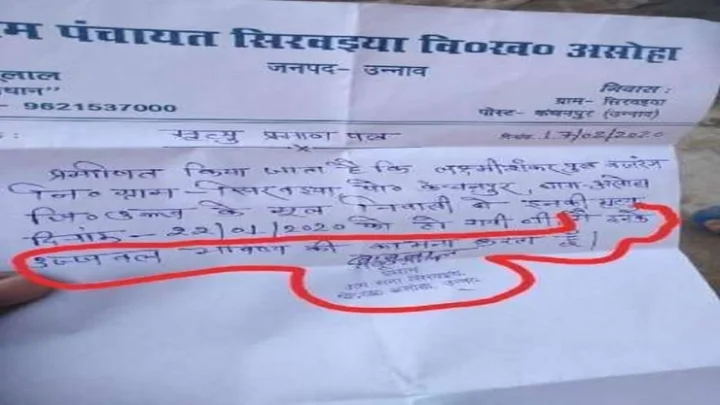 म पंचायत सिरवइया वि०ख० असोहा
जनपद- उन्नाव
लाल
धान"
- 9621537000
निवास :
ग्राम- सिरवइया
पोस्ट- कंचनपुर (उन्नाव)
मृत्यु प्रमाण पत्र
दिनांक 17/02/2020
प्रमाणित किया जाता है कि लक्ष्मीशंकर पुत्र बजरंग
नि० ग्राम- सिरवइया पो० कंचनपुर, थाना-असोहा
जि० उन्नाव के मूल निवासी थे इनकी मृत्यु
दिनांक- 22/01/2020 को हो गयी थी मै इनके
उज्जवल भविष्य की कामना करता हूँ।
प्रधान
ग्राम सभा सिरवइया